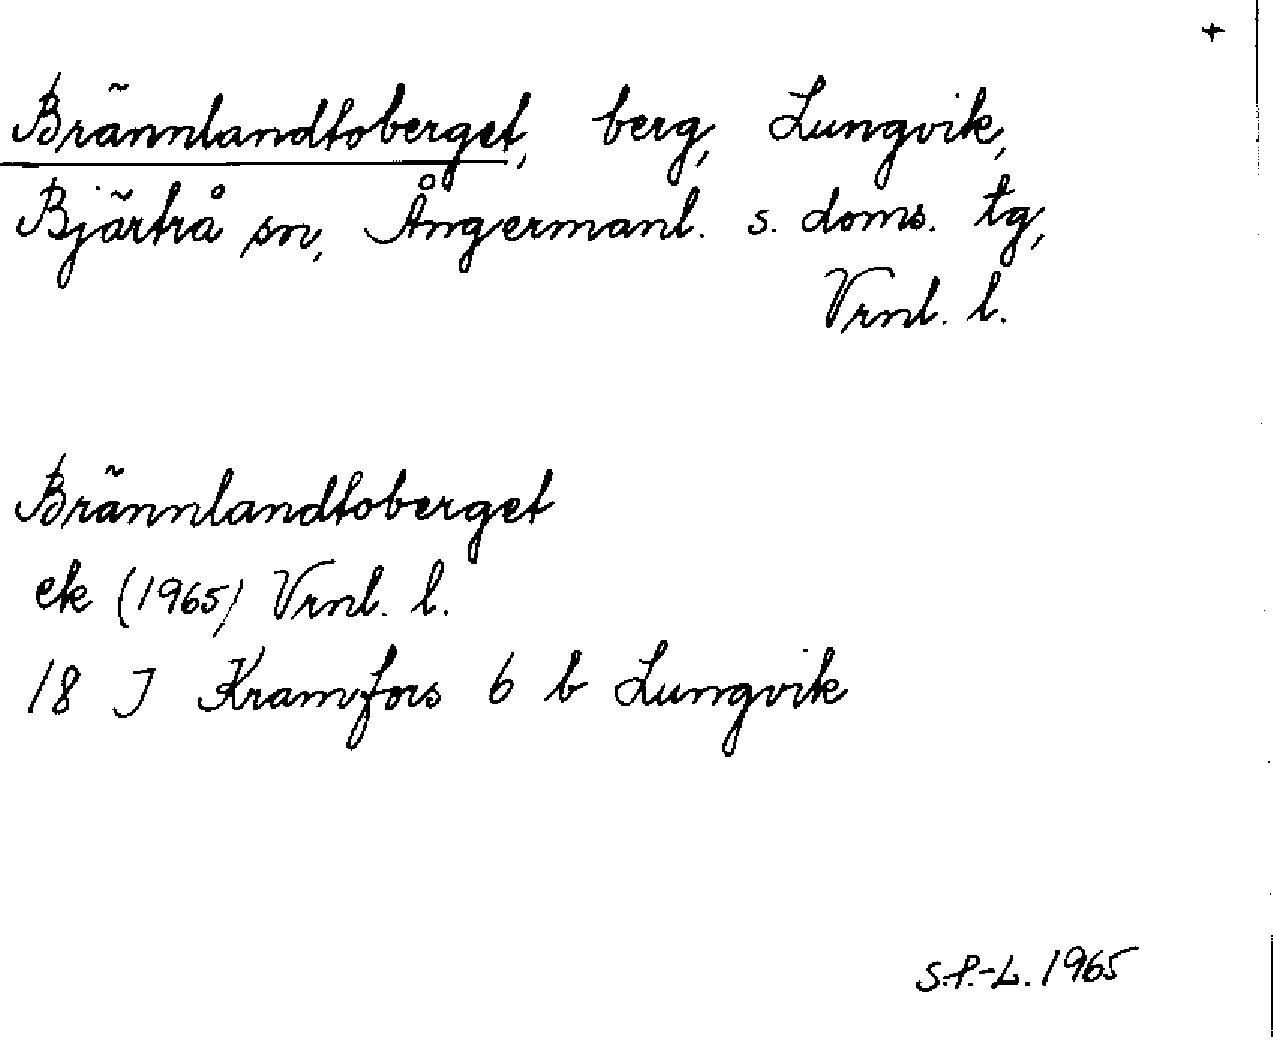 +
Brännlandtoberget, berg, Lungvik,
Bjärtrå sn, Ångermanl. s. doms. tg,
Vrnl. l.
Brännlandtoberget
ek (1965) Vrnl. l.
18 J Kramfors 6 b Lungvik
S.P.-L. 1965